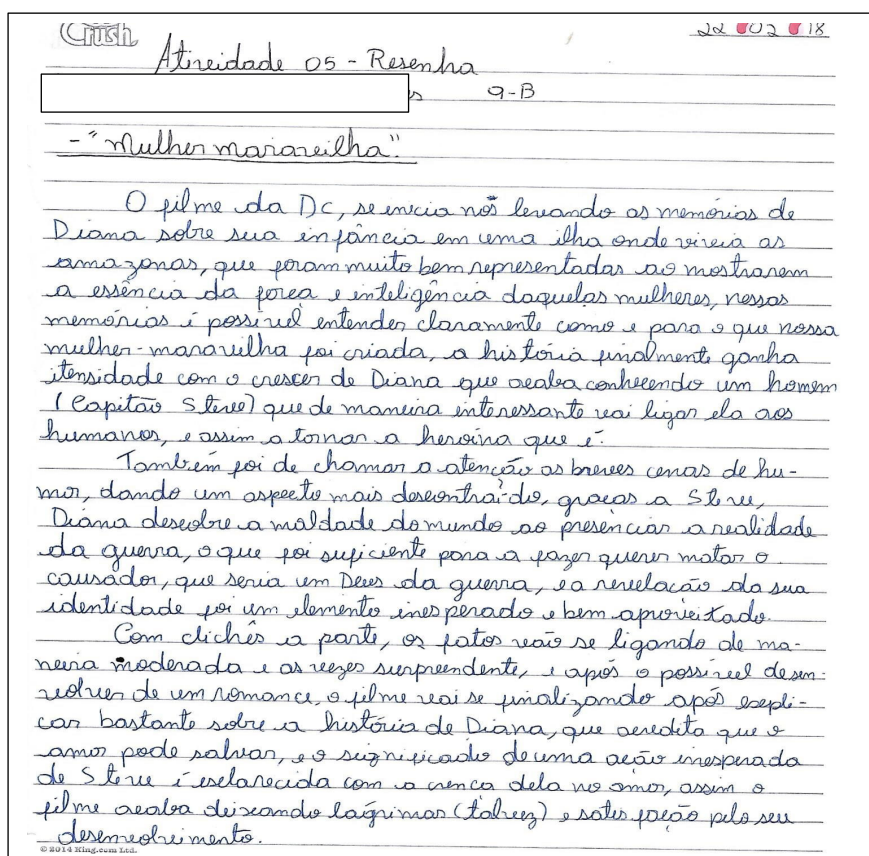 Crush
22 02 18
Atividade 05 - Resenha
s 9-B
- "Mulher maravilha".
O filme da Dc, se inicia nos levando as memórias de
Diana sobre sua infância em uma ilha onde vivia as
amazonas, que foram muito bem representadas ao mostrarem
a essência da força e inteligência daquelas mulheres, nessas
memórias é possível entender claramente como e para o que nossa
mulher-maravilha foi criada, a história finalmente ganha
itensidade com o crescer de Diana que acaba conhecendo um homem
(Capitão Steve) que de maneira interessante vai ligar ela aos
humanos, e assim a tornar a heroína que é.
Também foi de chamar a atenção as breves cenas de hu-
mor, dando um aspecto mais descontraído, graças a Steve,
Diana descobre a maldade do mundo ao presenciar a realidade
da guerra, o que foi suficiente para a fazer querer matar o
causador, que seria um Deus da guerra, e a revelação da sua
identidade foi um elemento inesperado e bem aproveitado.
Com clichês a parte, os fatos vão se ligando de ma-
neira moderada e as vezes surpreendente, e após o possível desen-
volver de um romance, o filme vai se finalizando após expli-
car bastante sobre a história de Diana, que acredita que o
amor pode salvar, e o significado de uma ação inesperada
de Steve é esclarecida com a crença dela no amor, assim o
filme acaba deixando lágrimas (talvez) e satisfação pelo seu
desenvolvimento.
© 2014 King.com Ltd.